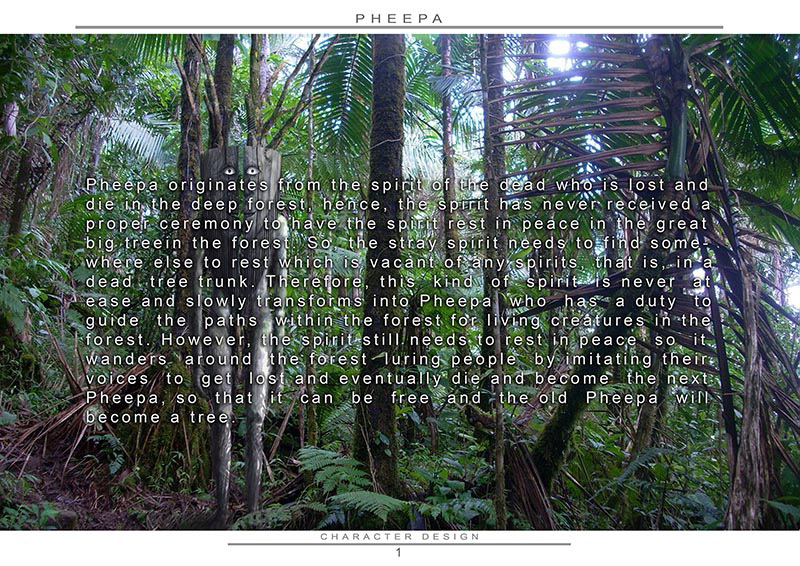 PHEEPA
Pheepa originates from the spirit of the dead who is lost and
die in the deep forest, hence, the spirit has never received a
proper ceremony to have the spirit rest in peace in the great
big treein the forest. So, the stray spirit needs to find some-
where else to rest which is vacant of any spirits, that is, in a
dead tree trunk. Therefore, this kind of spirit is never at
ease and slowly transforms into Pheepa who has a duty to
guide the paths within the forest for living creatures in the
forest. However, the spirit still needs to rest in peace so it
wanders around the forest luring people by imitating their
voices to get lost and eventually die and become the next
Pheepa, so that it can be free and the old Pheepa will
become a tree.
CHARACTER DESIGN
1